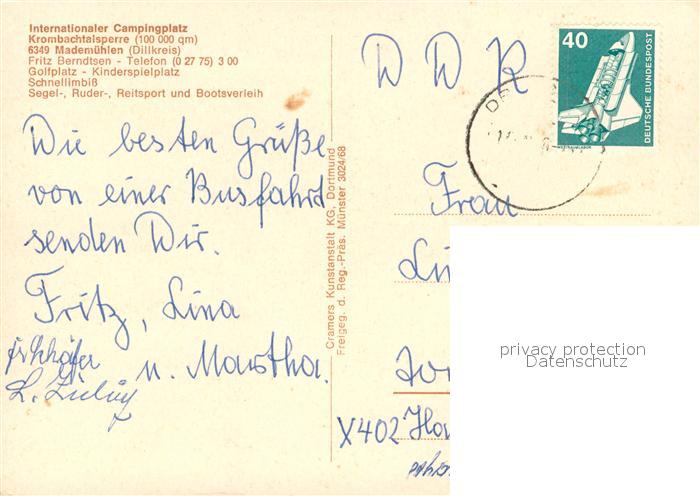 Internationaler Campingplatz
Krombachtalsperre (100 000 qm)
6349 Mademühlen (Dillkreis)
Fritz Berndtsen - Telefon (0 27 75) 3 00
Golfplatz - Kinderspielplatz
Schnellimbiß
Segel-, Ruder-, Reitsport und Bootsverleih
Die besten Grüße
von einer Busfahrt
senden Wir.
Fritz, Lina
u. Martha.
Cramers Kunstanstalt KG, Dortmund
Freigeg. d. Reg.-Präs. Münster 3024/68
DDR
40
DEUTSCHE BUNDESPOST
Frau
X402
privacy protection
Datenschutz